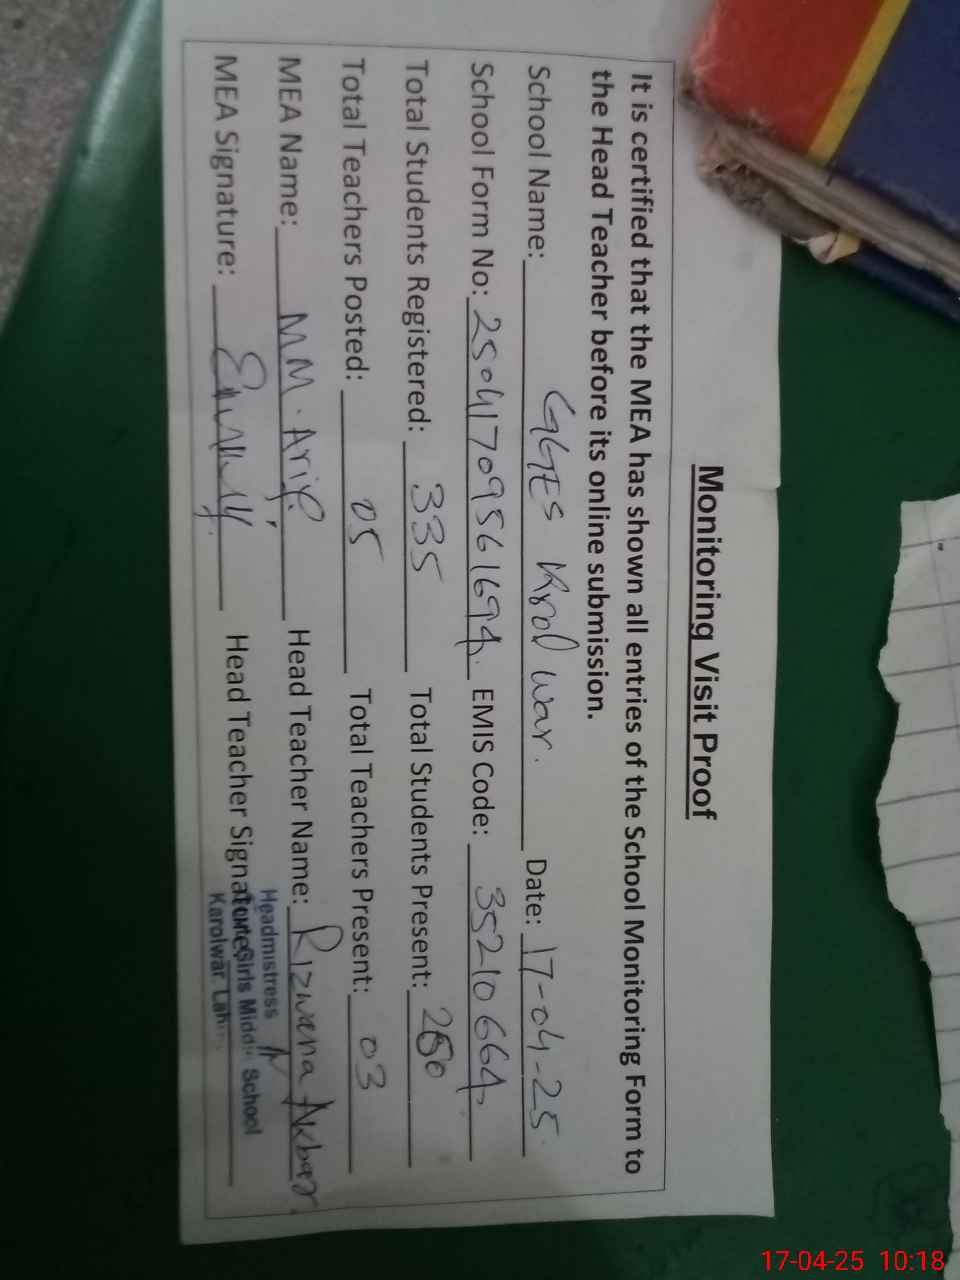 Monitoring Visit Proof
It is certified that the MEA has shown all entries of the School Monitoring Form to
the Head Teacher before its online submission.
School Name: GGES Krol war. Date: 17-04-25
School Form No: 25041709561694. EMIS Code: 35210664
Total Students Registered: 335 Total Students Present: 250
Total Teachers Posted: 05 Total Teachers Present: 03
MEA Name: MM. Arif Head Teacher Name: Rizwana Akbar
MEA Signature: Head Teacher Signature:
Headmistress
Govt. Girls Middle School
Karolwar
17-04-25 10:18